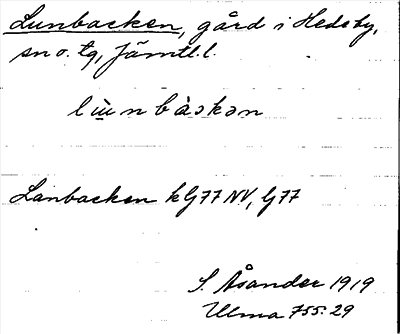 Lunbacken, gård i Hedeby,
sn o. tg, Jämtl.l.
Lanbacken kG77 NV, G77
S. Åsander 1919
Ulma 755:29